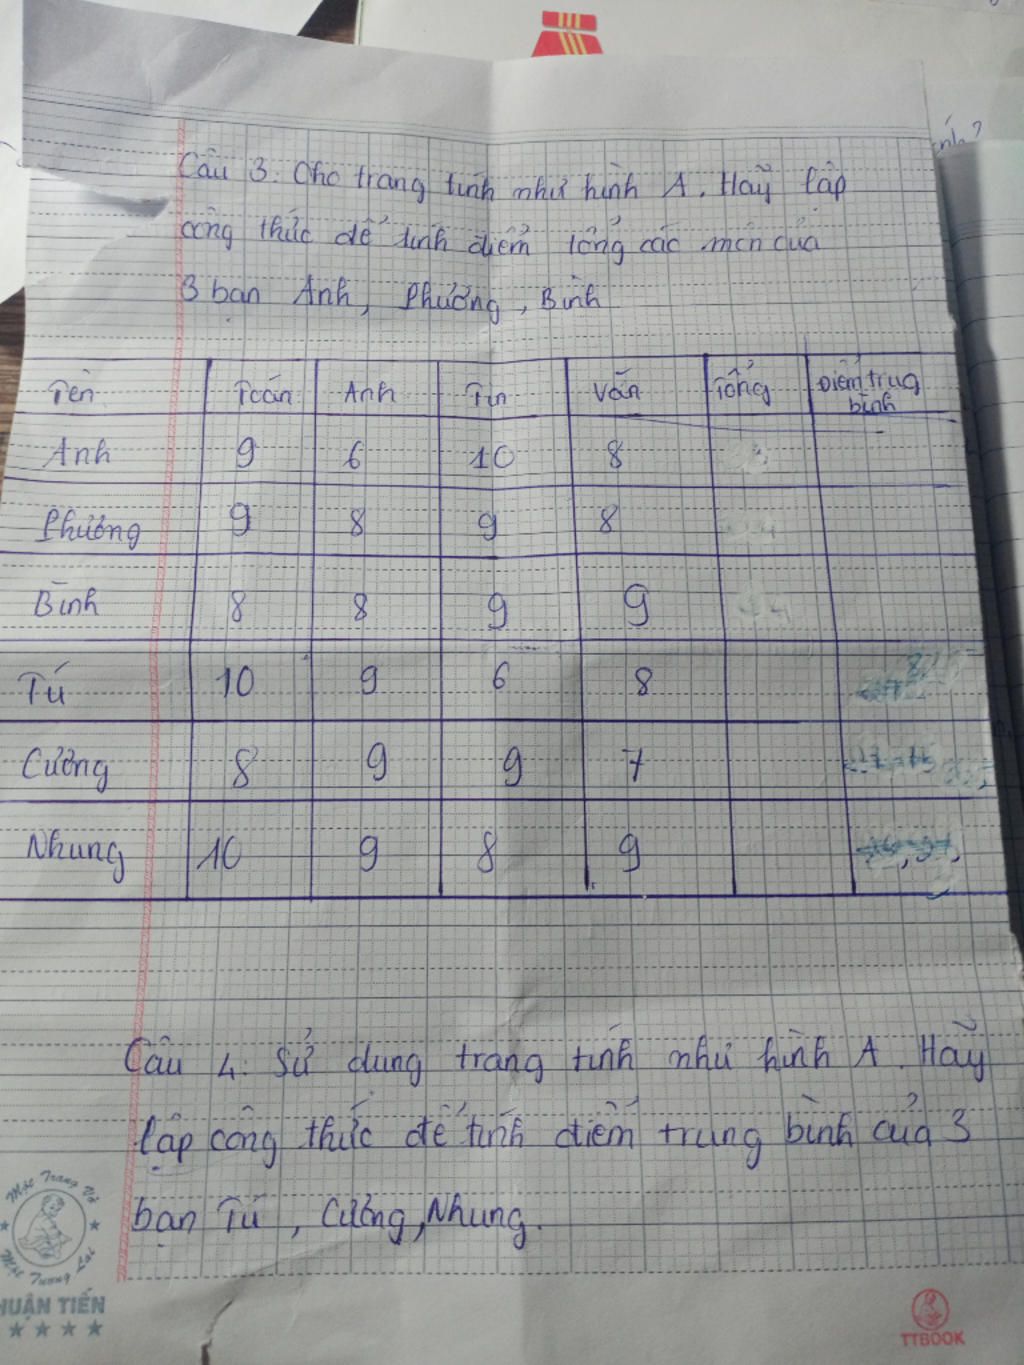 Câu 3. Cho trang tính như hình A. Hãy lập
công thức để tính điểm tổng các môn của
3 bạn Anh, Phương, Bình
Tên Toán Anh Tin Văn Tổng Điểm trug bình
Anh 9 6 10 8
Phương 9 8 9 8
Bình 8 8 9 9
Tú 10 9 6 8
Cường 8 9 9 7
Nhung 10 9 8 9
Câu 4: Sử dung trang tính như hình A. Hãy
lập công thức để tính điểm trung bình của 3
bạn Tú, Cường, Nhung.
Một Trang Vở
Một Tương Lai
HUẬN TIẾN
TTBOOK